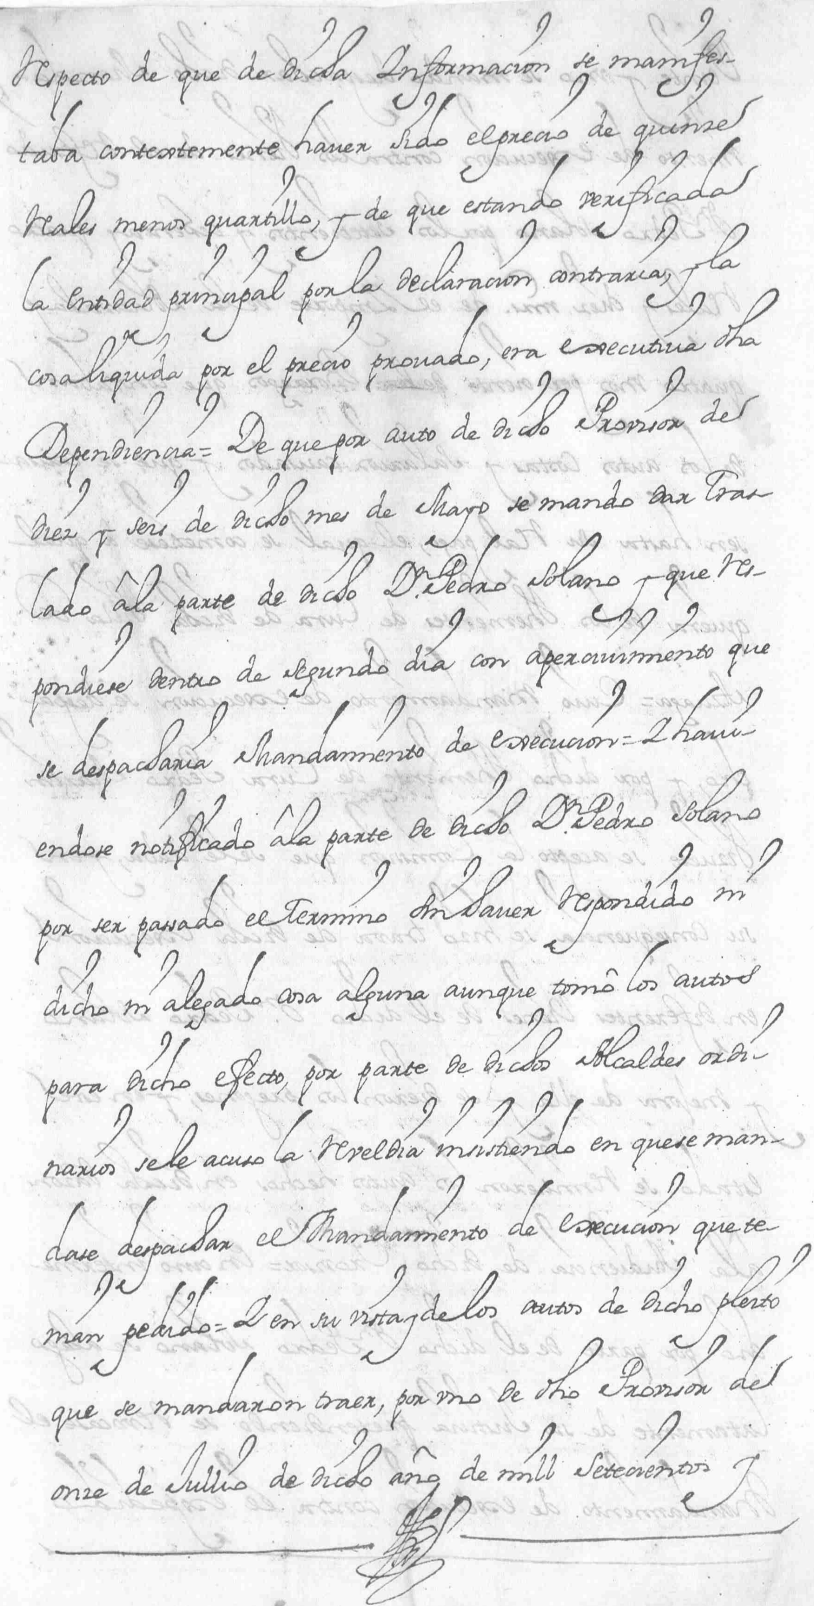 respecto de que de dicha Informacion se manifes-
taba contextemente haver sido el precio de quinze
reales menos quartillo, y de que estando verificada
la entidad principal por la declaracion contraria, y la
cosa liquida por el precio provado, era executiva dha
Dependiencia= De que por auto de dicho Provisor de
diez y seis de dicho mes de Mayo se mando dar tras-
lado â la parte de dicho Dn. Pedro Solano y que res-
pondiese dentro de segundo dia con apercivimiento que
se despacharia Mandamiento de execucion= Y havi-
endose notificado â la parte de dicho Dn. Pedro Solano
por ser passado el termino sin haver respondido ni
dicho ni alegado cosa alguna aunque tomô los autos
para dicho efecto, por parte de dichos Alcaldes ordi-
narios se le acuso la reveldia insistiendo en que se man-
dase despachar el Mandamiento de execucion que te-
nian pedido= Y en su vista y de los autos de dicho pleito
que se mandaron traer, por uno de dho Provisor de
onze de Jullio de dicho año de mill setecientos y